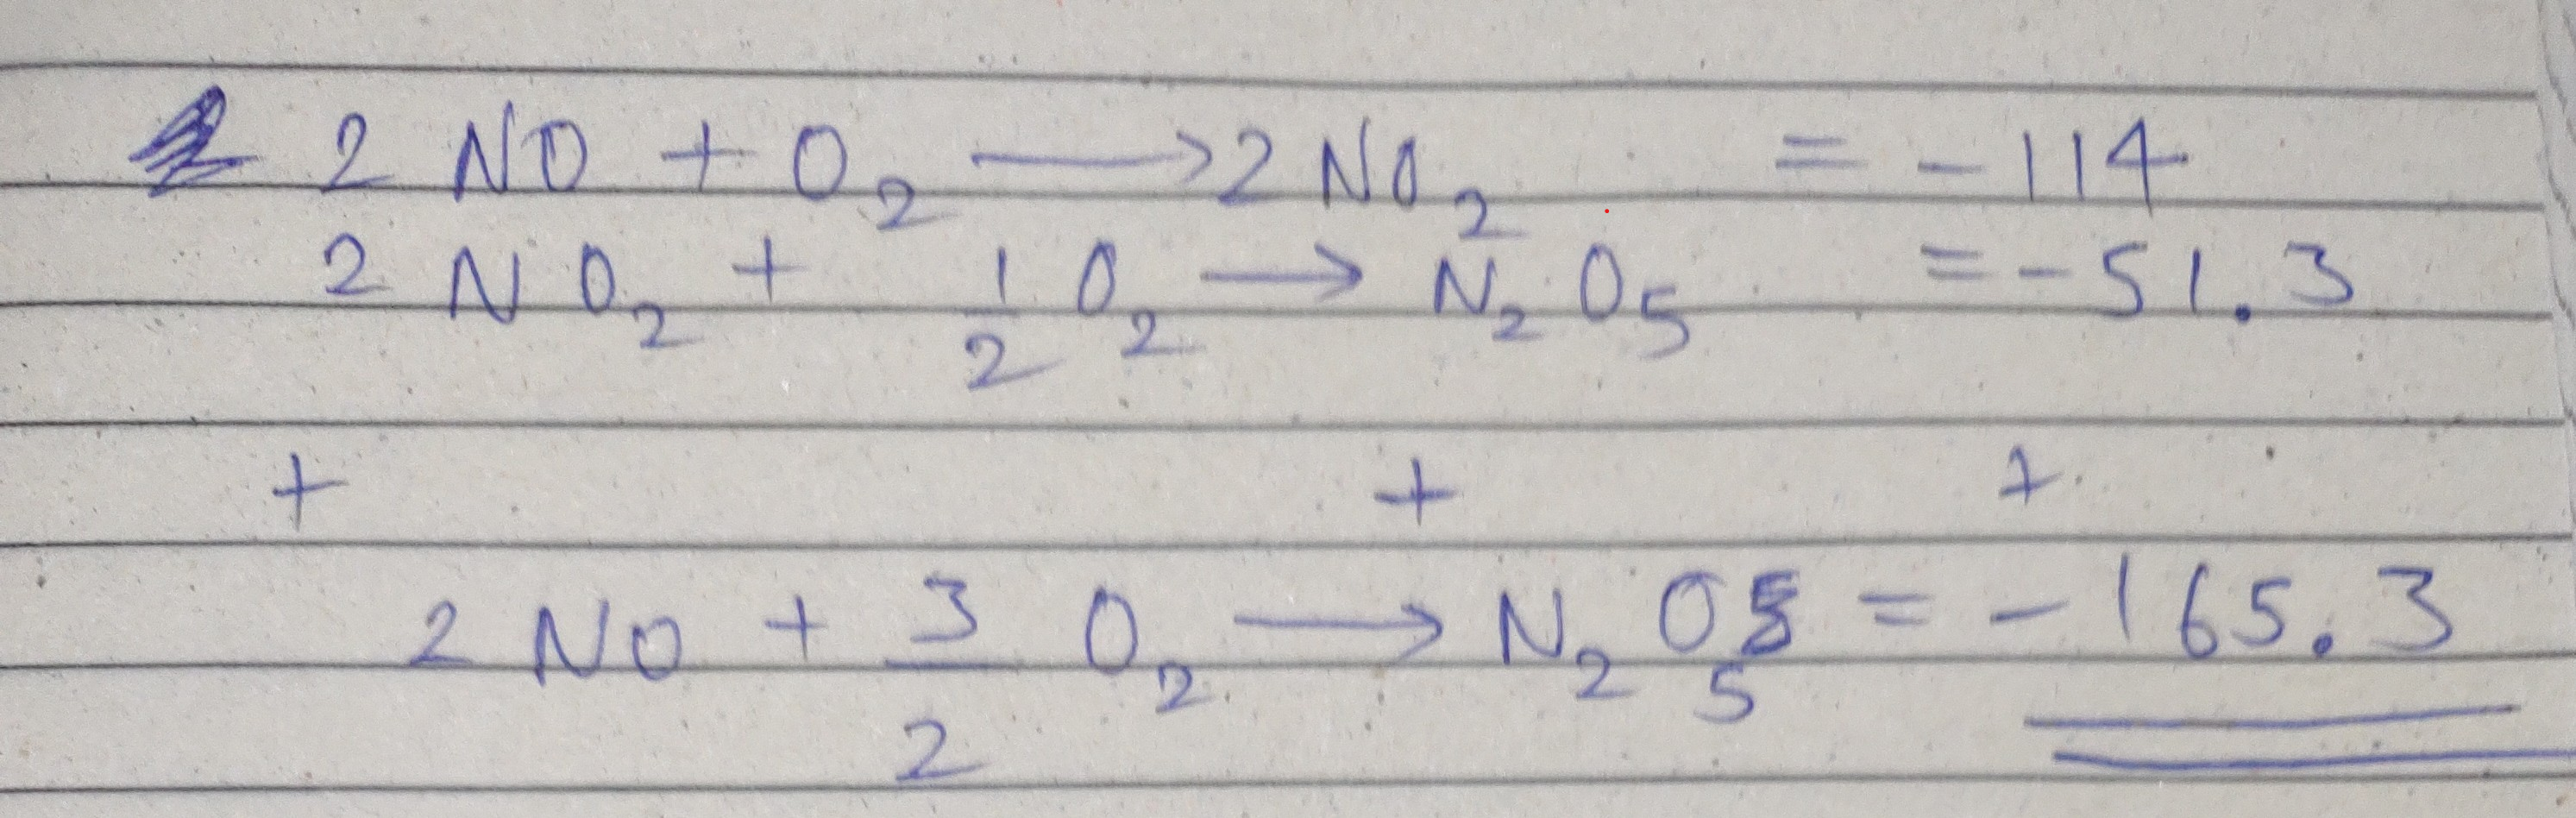 2 NO + O₂ ⟶ 2 NO₂ = -114
2 NO₂ + 1/2 O₂ ⟶ N₂O₅ = -51.3
+ + +
2 NO + 3/2 O₂ ⟶ N₂O₅ = -165.3